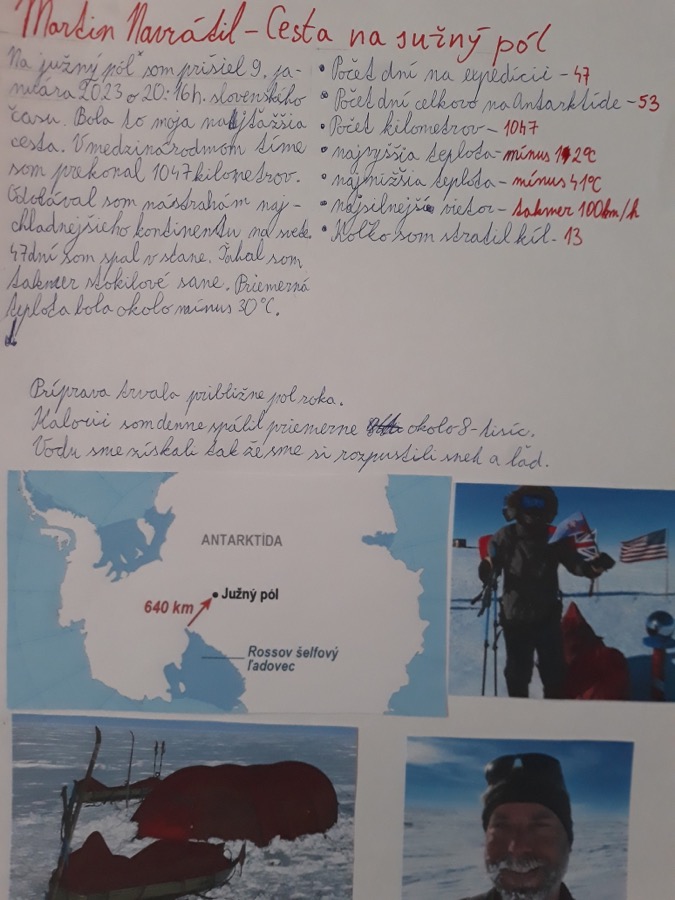 Martin Navrátil - Cesta na južný pól
Na južný pól som prišiel 9. ja-
nuára 2023 o 20:16 h. slovenského
času. Bola to moja najťažšia
cesta. V medzinárodnom tíme
som prekonal 1047 kilometrov.
Odolával som nástrahám naj-
chladnejšieho kontinentu na svete.
47 dní som spal v stane. Ťahal som
takmer stokilové sane. Priemerná
teplota bola okolo mínus 30°C.
• Počet dní na expedícii - 47
• Počet dní celkovo na Antarktíde - 53
• Počet kilometrov - 1047
• najvyššia teplota - mínus 12°C
• najnižšia teplota - mínus 41°C
• najsilnejší vietor - takmer 100 km/h
• Koľko som stratil kíl - 13
Príprava trvala približne pol roka.
Kalórií som denne spálil priemerne okolo 8-tisíc.
Vodu sme získali tak že sme si rozpustili sneh a ľad.
ANTARKTÍDA
Južný pól
640 km
Rossov šelfový
ľadovec